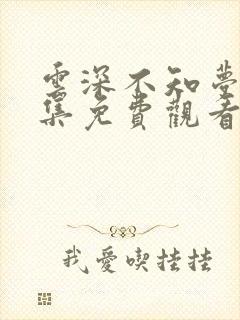 雲深不知夢
集免費觀看
我愛喫掛掛